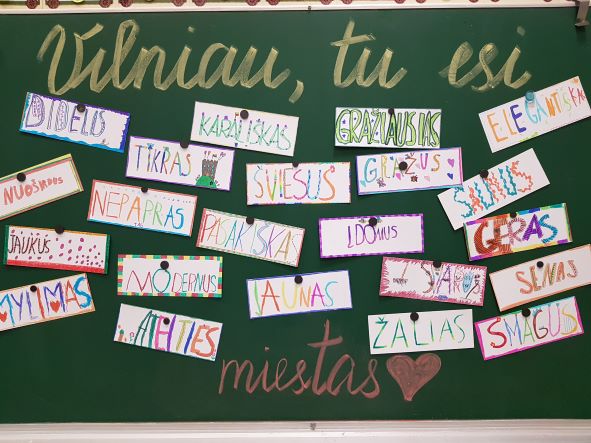 Vilniau, tu esi
DIDELIS
KARALIŠKAS
GRAŽIAUSIAS
ELEGANTIŠKAS
TIKRAS
ŠVIESUS
GRAŽUS
NUOŠIRDUS
NEPAPRAS
PASAKIŠKAS
ĮDOMUS
GERAS
JAUKUS
MODERNUS
JAUNAS
SENAS
MYLIMAS
ATEITIES
ŽALIAS
SMAGUS
miestas